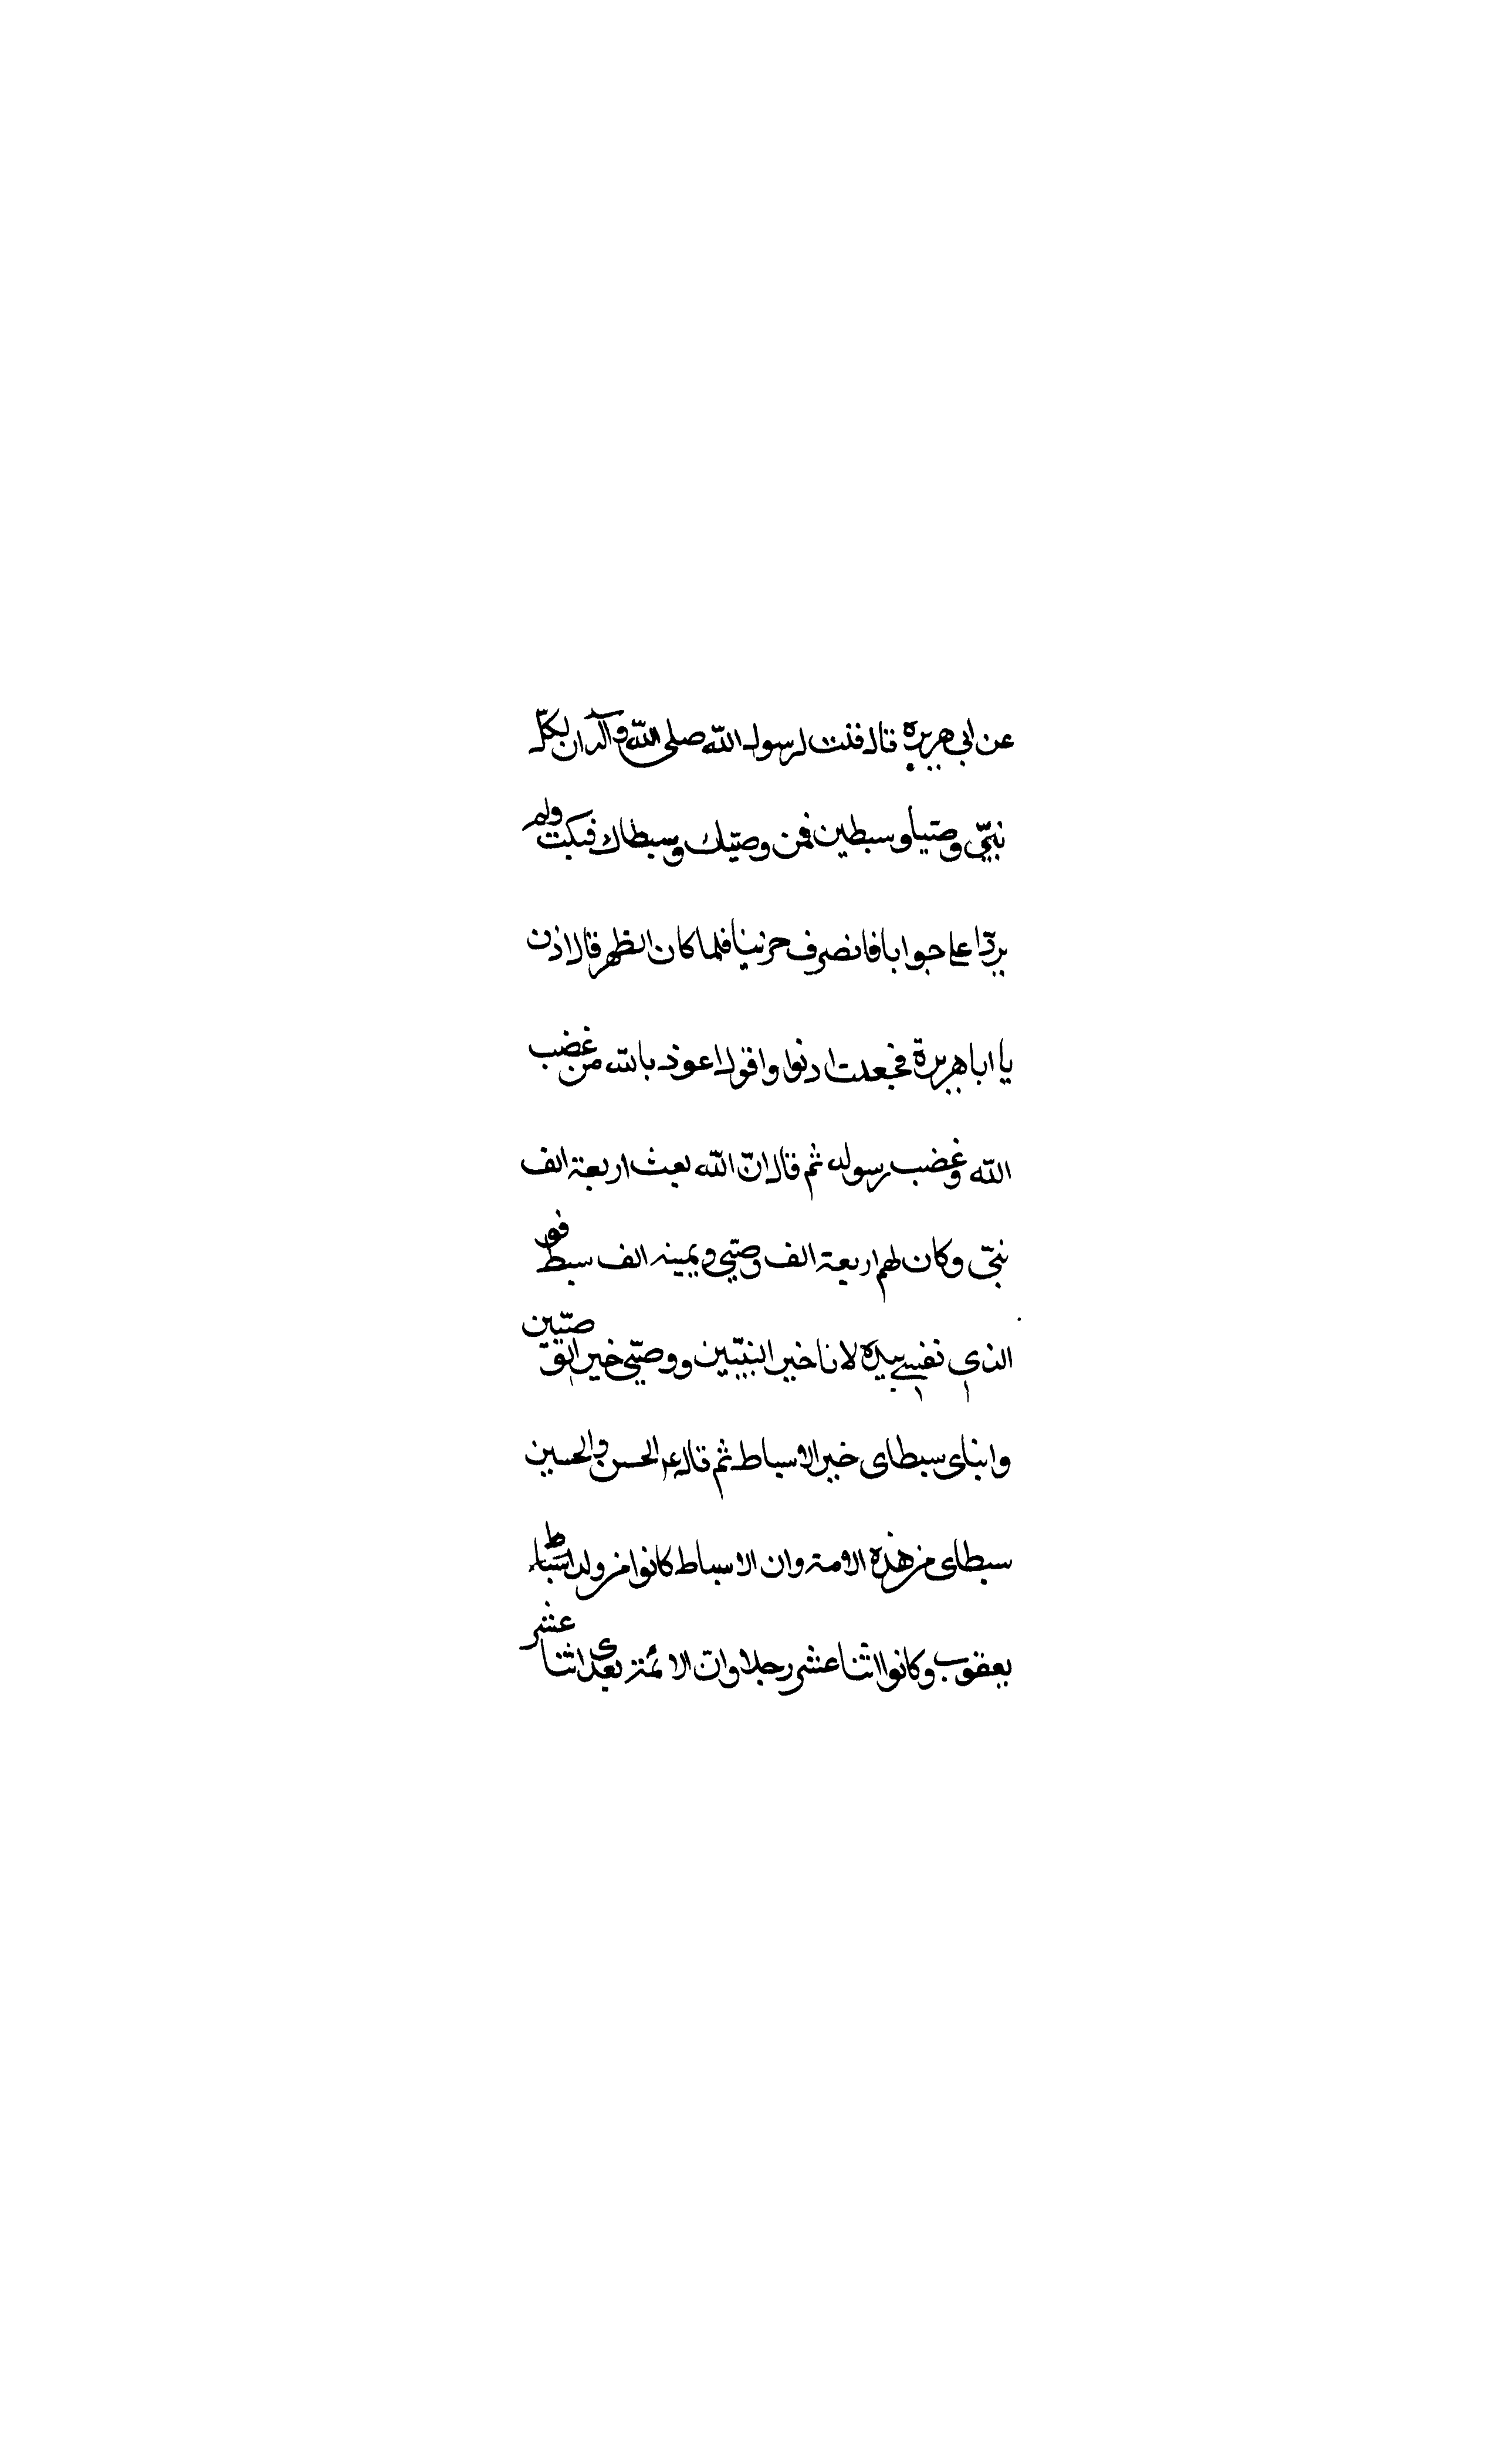 عن ابی هریرة قال قلت لرسول الله صلی الله وآله ان لکل
نبیّ وصیّا وسبطین فمن وصیّك وسبطاك فسکت ولم
یردّ علی جوابا فانصرف حزینا فلما کان الظهر قال ادن
یا ابا هریرة فجعلت ادنوا واقول اعوذ بالله من غضب
الله وغضب رسوله ثم قال انّ الله بعث اربعة الف
نبیّ وکان لهم اربعة الف وصیّ و یمینه الف سبط فو
الذی نفسی بیده لانا خیر النبیّین ووصیّی خیر الوصیّین
وابنای سبطای خیر الاسباط ثم قال ع الحسن والحسین
سبطای من هذه الامة وان الاسباط کانوا من ولد اسباط
یعقوب وکانوا اثنا عشر رجلا وانّ الائمة بعدی اثنا عشر